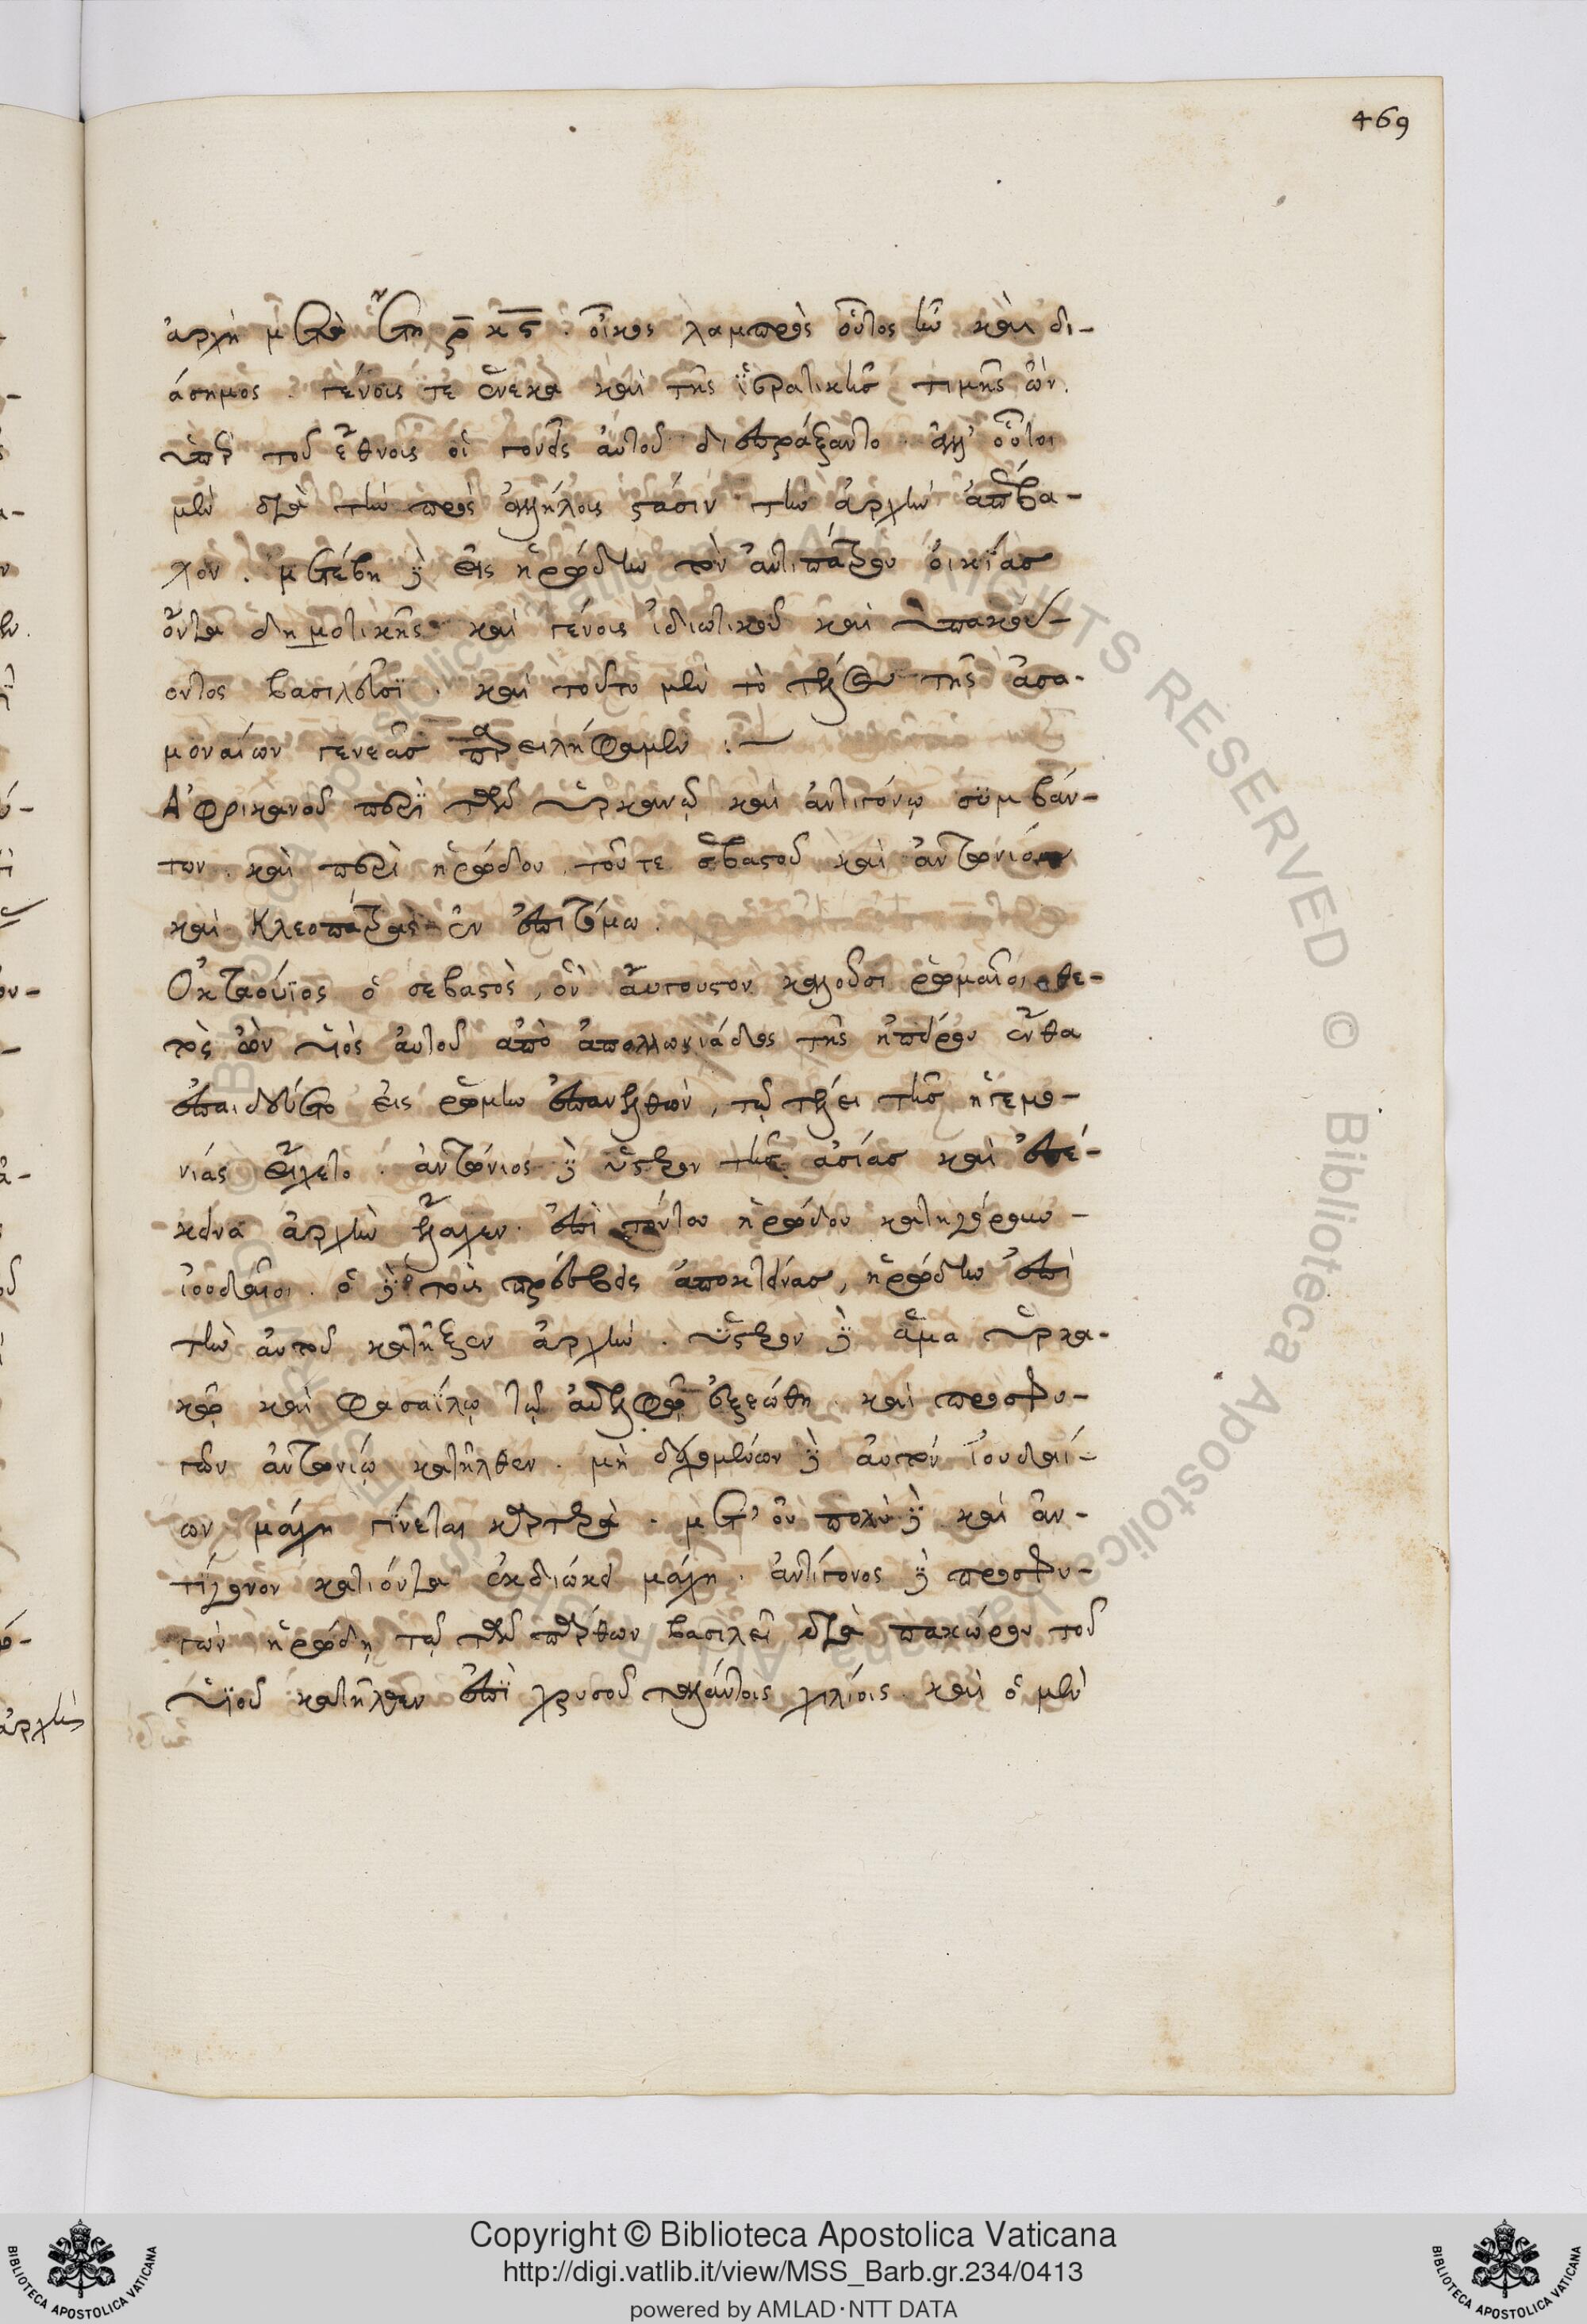 469
ἀρχὴ μετὰ ἔτη ρ̅ κ̅ς̅. οἶκος λαμπρὸς οὗτος ἦν καὶ δι-
άσημος. γένους τε ἕνεκα καὶ τῆς ἱερατικῆς τιμῆς ὧν.
ὑπὲρ τοῦ ἔθνους οἱ γονεῖς αὐτοῦ διεπράξαντο. ἀλλ' οὗτοι
μὲν διὰ τὴν πρὸς ἀλλήλους στάσιν τὴν ἀρχὴν ἀπέβα-
λον. μετέβη δὲ εἰς ἡρώδην τὸν ἀντιπάτρου οἰκίας
ὄντα δημοτικῆς καὶ γένους ἰδιωτικοῦ καὶ ὑπακού-
οντος βασιλεῦσι. καὶ τοῦτο μὲν τὸ τέλος τῆς ἀσα-
μοναίων γενεᾶς παρειλήφαμεν :~
Ἀφρικανοῦ περὶ τῶν ὑρκανῷ καὶ ἀντιγόνῳ συμβάν-
των. καὶ περὶ ἡρώδου, τοῦ τε σεβαστοῦ καὶ ἀντωνίου
καὶ Κλεοπάτρας ἐν ἐπιτόμω.
Ὀκταούϊος ὁ σεβαστὸς, ὃν ἄυγουστον καλοῦσι ῥωμαῖοι, θε-
τὸς ὢν υἱὸς αὐτοῦ ἀπὸ ἀπολλωνιάδος τῆς ἠπείρου ἔνθα
ἐπαιδεύετο εἰς ῥώμην ἐπανελθὼν, τῷ τέλει τῆς ἡγεμο-
νίας εἵλετο. ἀντώνιος δὲ ὕστερον τῆς ἀσίας καὶ ἐπέ-
κεινα ἀρχὴν ἔλαχεν. ἐπὶ τούτου ἡρώδου κατηγόρουν
ἰουδαῖοι. ὁ δὲ τοὺς πρέσβεις ἀποκτείνας, ἡρώδην ἐπὶ
τὴν αὐτοῦ κατῆξεν ἀρχήν. ὕστερον δὲ ἅμα ὑρκα-
νῷ καὶ φασαΐλῳ τῷ ἀδελφῷ ἐξεώθη. καὶ προσφυ-
γὼν ἀντωνίῳ κατῆλθεν. μὴ δεχομένων δὲ αὐτὸν ἰουδαί-
ων μάχη γίνεται καρτερὰ. μετ' οὐ πολὺ δὲ καὶ ἀν-
τίγονον κατιόντα ἐκδιώκει μάχη. ἀντίγονος δὲ προσφυ-
γὼν ἡρώδῃ τῷ τῶν πάρθων βασιλεῖ διὰ πακώρου τοῦ
υἱοῦ κατῆλθεν ἐπὶ χρυσοῦ ταλάντοις χιλίοις. καὶ ὁ μὲν
Copyright © Biblioteca Apostolica Vaticana
http://digi.vatlib.it/view/MSS_Barb.gr.234/0413
powered by AMLAD·NTT DATA